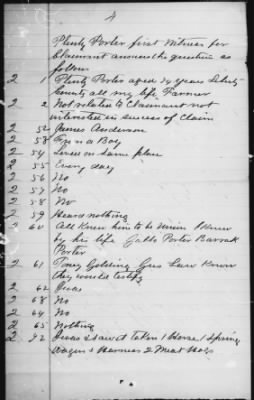 4
Plenty Porter first Witness for
Claimant answers the question as
follows
2 1 Plenty Porter aged 59 years Liberty
County all my life Farmer
2 2 Not related to Claimant not
interested in success of Claim
2 52 James Anderson
2 53 From a Boy
2 54 Lived on Same place
2 55 Every day
2 56 No
2 57 No
2 58 No
2 59 Heard nothing
2 60 All Knew him to be Union I Knew
by his life Gabb Porter Barrak
Porter
2 61 Tony Golding Gus Law Know
they would testify
2 62 I was
2 63 No
2 64 No
2 65 Nothing
2 72 I was & saw it Taken 1 Horse 1 Spring
Wagon & Harness 2 Meat Hogs